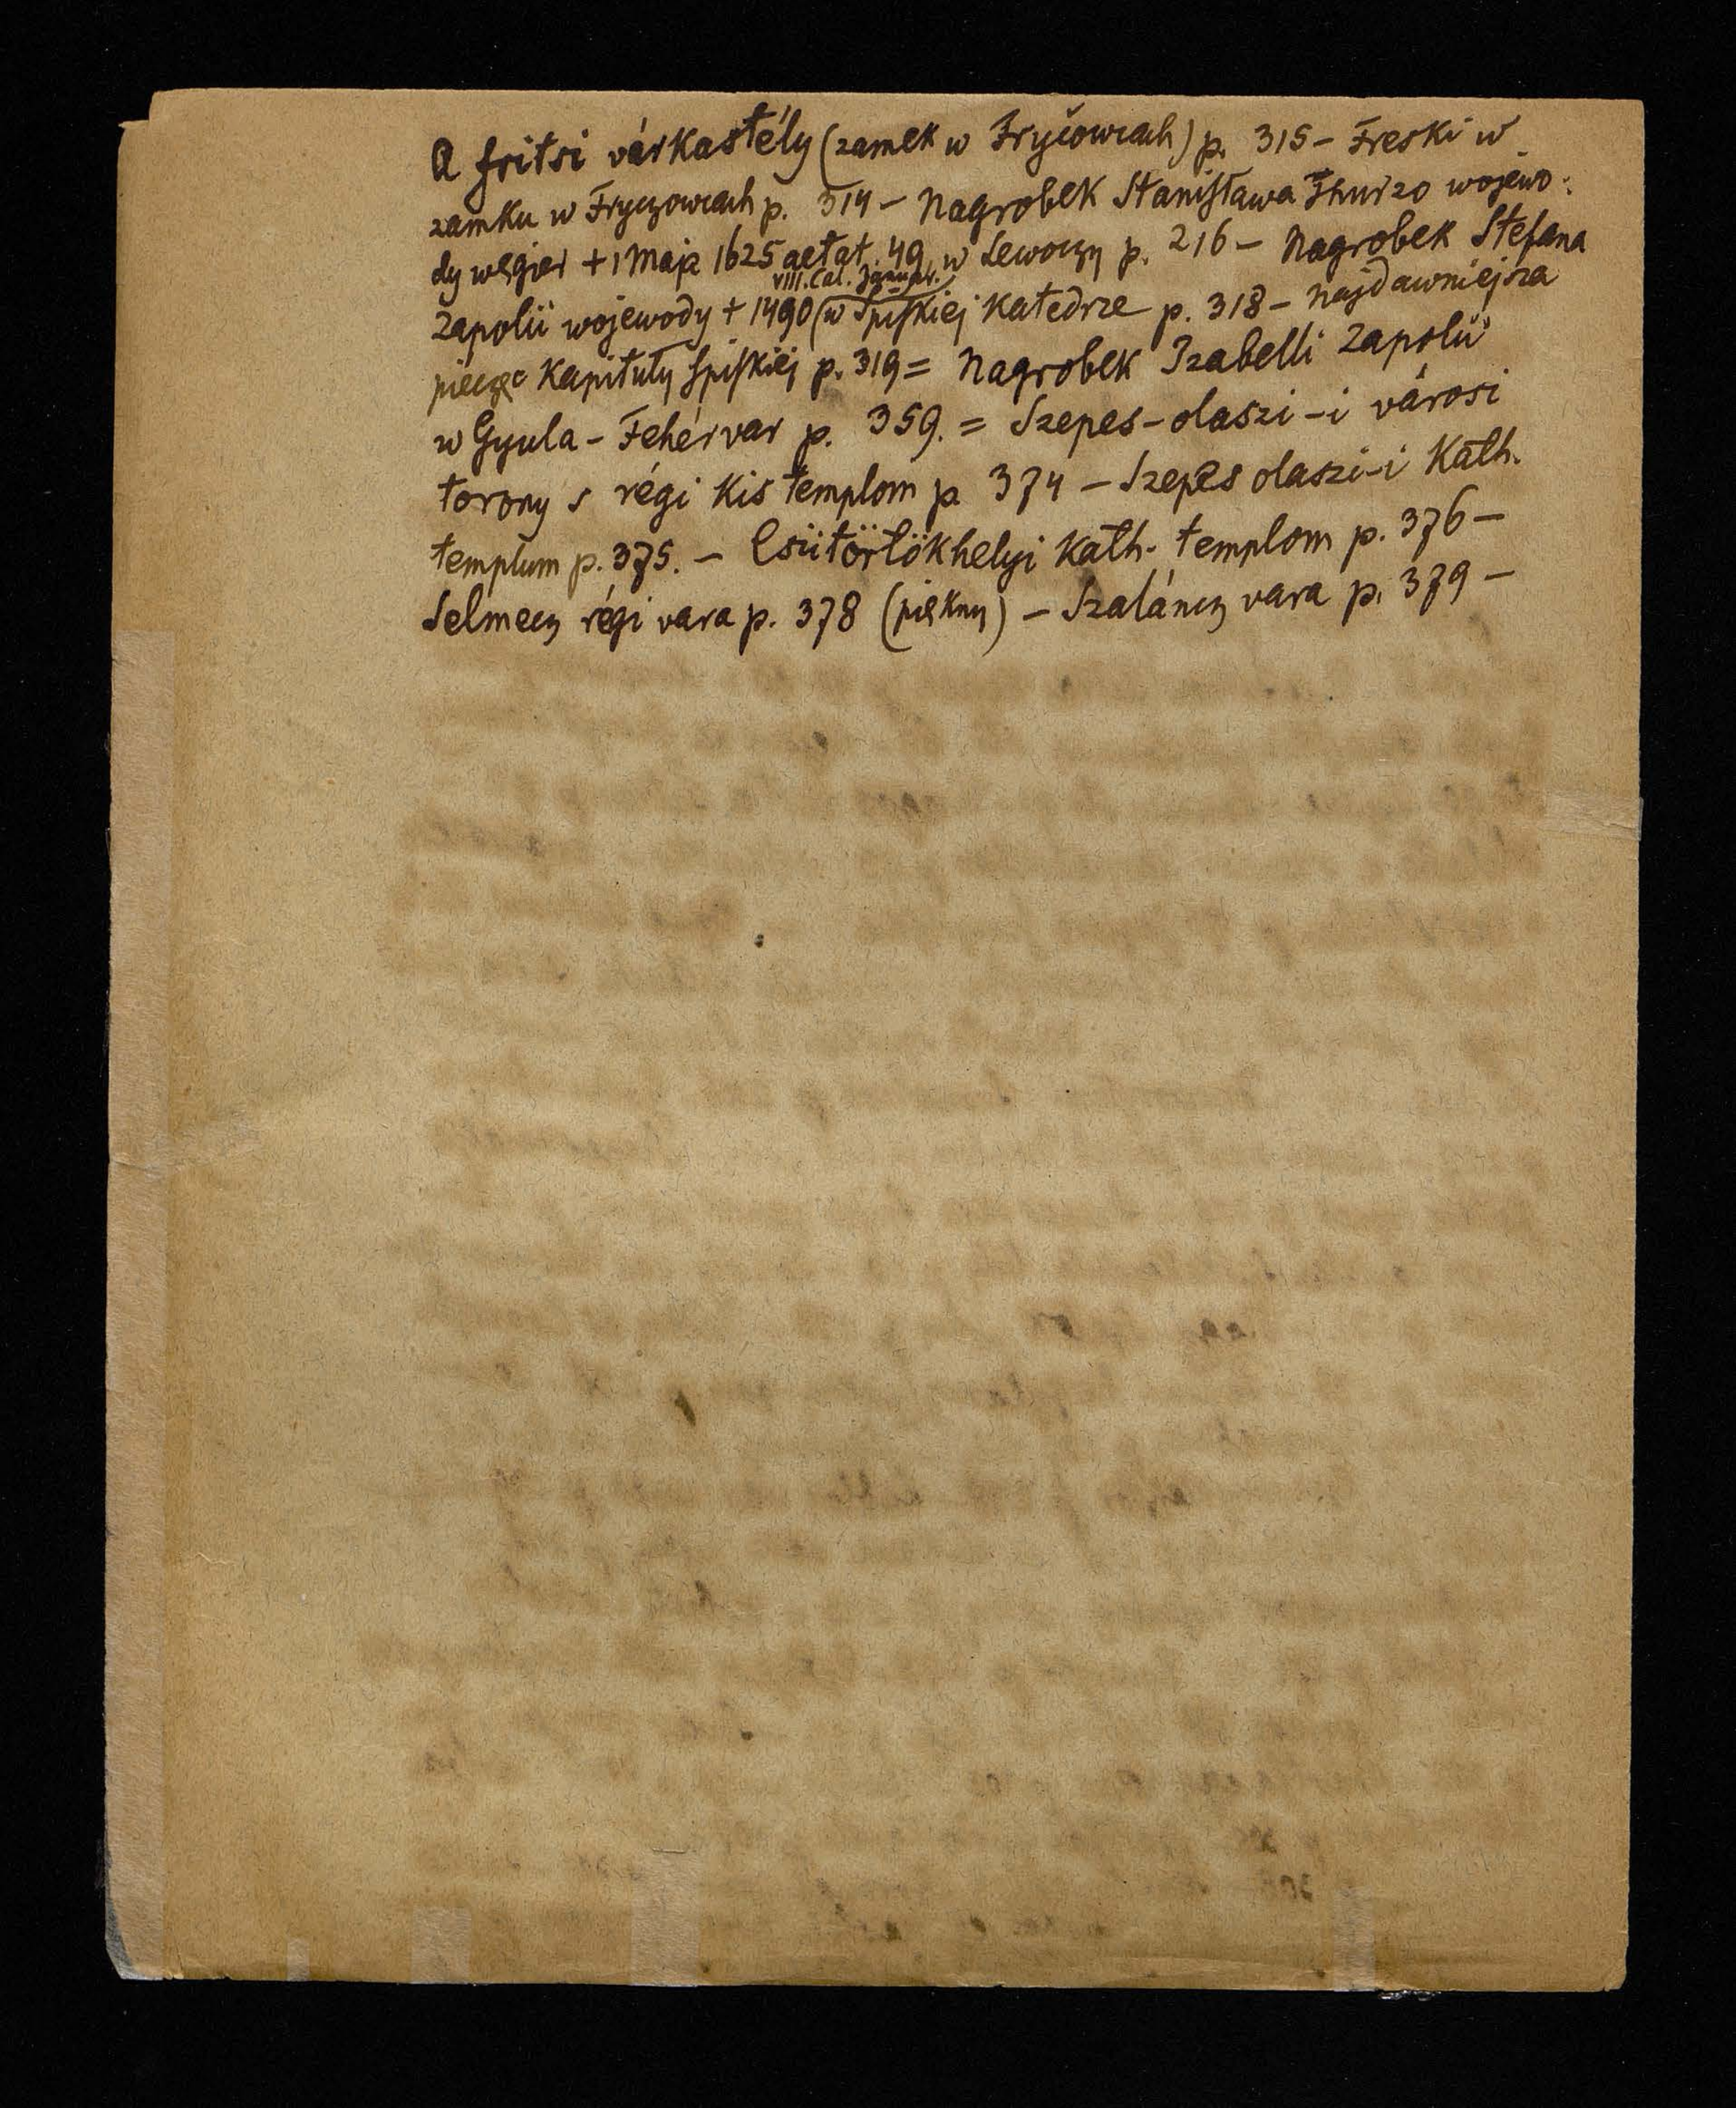 A fritsi várkastély (zamek w Fryčowcach) p. 315 – Freski w
zamku w Fryczowcach p. 314 – Nagrobek Stanisława Thurzo wojewo-
dy węgier + 1 Maja 1625 aetat. 49, w Lewoczy p. 216 – Nagrobek Stefana
VIII. Cal. Januar.
Zapolii wojewody + 1490 (w Spiskiej Katedrze p. 318 – najdawniejsza
pieczęć Kapituły Spiskiej p. 319 = Nagrobek Izabelli Zapolii
w Gyula-Fehérvar p. 359. = Szepes-olaszi-i városi
torony s régi Kis templom p 374 – Szepes olaszi-i Kath.
templum p. 375. – Csütörtökhelyi Kath. templom p. 376 –
Selmecz régi vara p. 378 (piękny) – Szaláncz vara p. 379 –